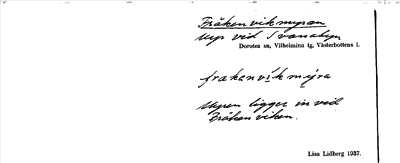 Fräkenvikmyran
Myr vid Svanabyn
Dorotea sn, Vilhelmina tg, Västerbottens l.
frakenvikmyra
Myren ligger in vid
Fräkenviken.
Lisa Lidberg 1937.